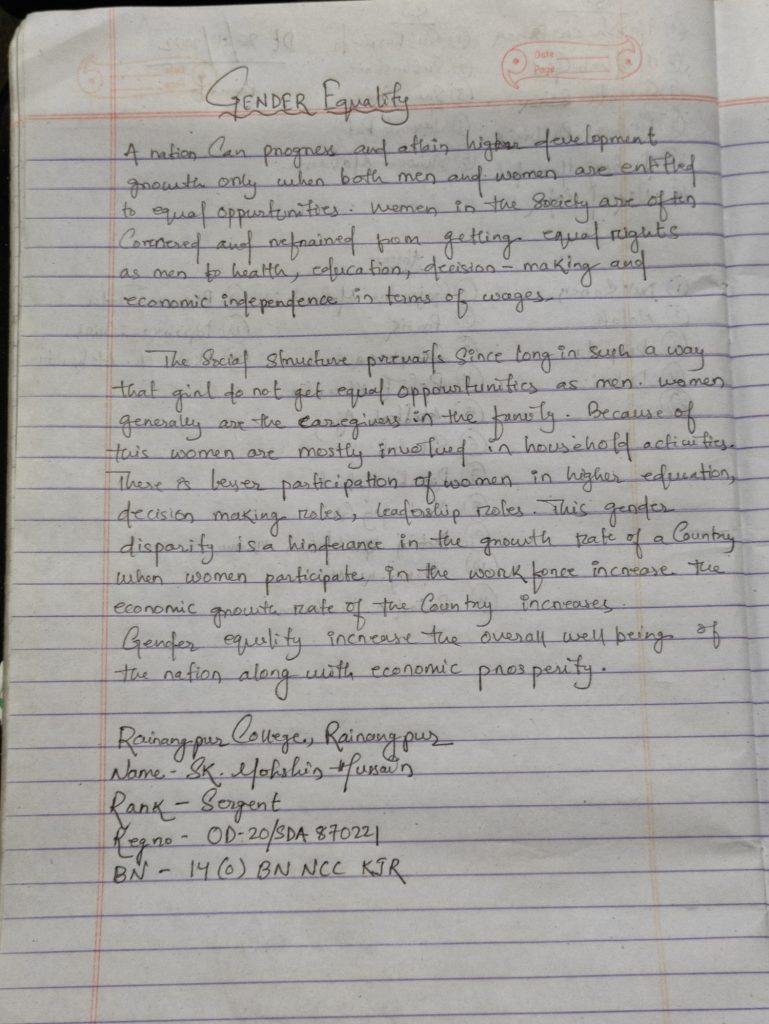 Date
Page
GENDER Equality
A nation Can progress and attain higher development
growth only when both men and women are entitled
to equal oppurtunities. Women in the Society are often
Cornered and refrained from getting equal rights
as men to health, education, decision-making and
economic independence in terms of wages.
The Social Structure prevails Since long in such a way
that girl do not get equal oppourtunities as men. women
generally are the caregivers in the family. Because of
this women are mostly involved in household activities.
There is lesser participation of women in higher education,
decision making roles, leadership roles. This gender
disparity is a hinderance in the growth rate of a Country
when women participate in the work force increase the
economic growth rate of the Country increases.
Gender equility increase the overall well being of
the nation along with economic prosperity.
Rairangpur College, Rairangpur
Name - SK. Mohshin Hussain
Rank - Sergent
Regno - OD-20/SDA 870221
BN - 14 (O) BN NCC KJR